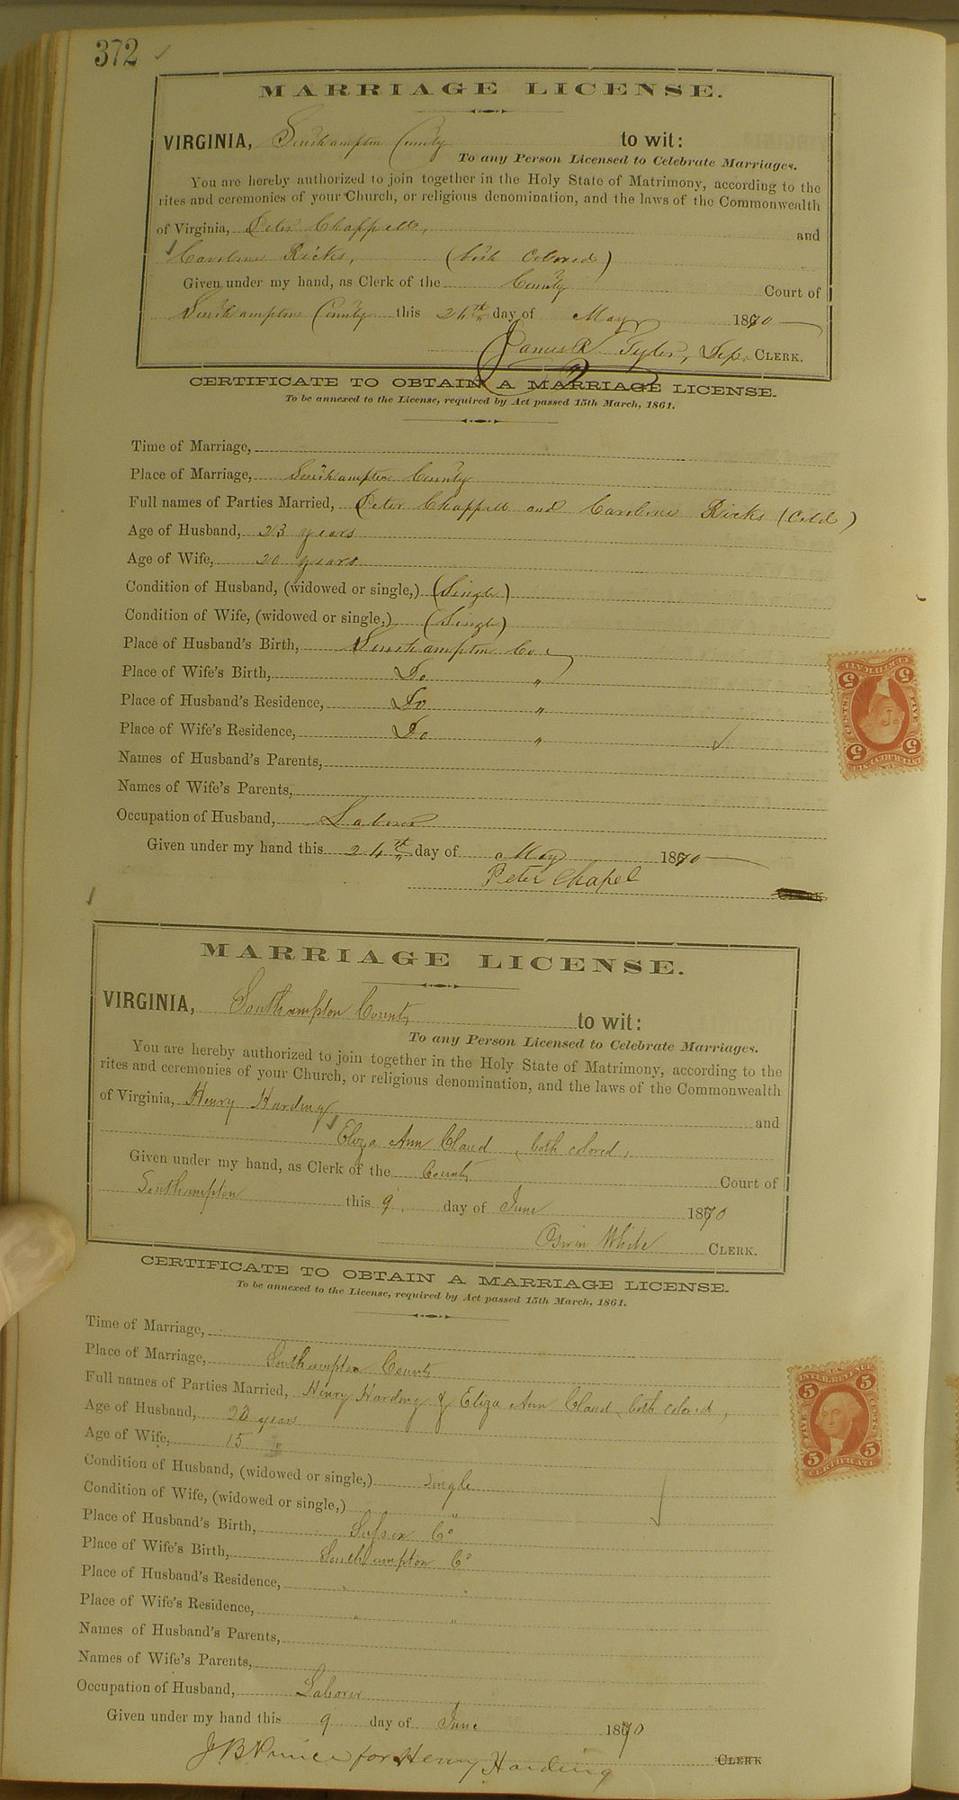 372
MARRIAGE LICENSE.
VIRGINIA, Southampton County to wit:
To any Person Licensed to Celebrate Marriages.
You are hereby authorized to join together in the Holy State of Matrimony, according to the
rites and ceremonies of your Church, or religious denomination, and the laws of the Commonwealth
of Virginia, Peter Chappell, and
Caroline Ricks, (both colored)
Given under my hand, as Clerk of the County Court of
Southampton County this 24th day of May 1870
James R Tyler, Dep. CLERK.
CERTIFICATE TO OBTAIN A MARRIAGE LICENSE.
To be annexed to the License, required by Act passed 15th March, 1861.
Time of Marriage,
Place of Marriage, Southampton County
Full names of Parties Married, Peter Chappell and Caroline Ricks (Cold)
Age of Husband, 23 years
Age of Wife, 20 years
Condition of Husband, (widowed or single,) (Single)
Condition of Wife, (widowed or single,) (Single)
Place of Husband's Birth, Southampton Co.
Place of Wife's Birth, Do "
Place of Husband's Residence, Do "
Place of Wife's Residence, Do "
Names of Husband's Parents,
Names of Wife's Parents,
Occupation of Husband, Laborer
Given under my hand this 24th day of May 1870
Peter Chapel
MARRIAGE LICENSE.
VIRGINIA, Southampton County to wit:
To any Person Licensed to Celebrate Marriages.
You are hereby authorized to join together in the Holy State of Matrimony, according to the
rites and ceremonies of your Church, or religious denomination, and the laws of the Commonwealth
of Virginia, Henry Harding and
Eliza Ann Claud, both colored,
Given under my hand, as Clerk of the County Court of
Southampton this 9 day of June 1870
Oswin White CLERK.
CERTIFICATE TO OBTAIN A MARRIAGE LICENSE.
To be annexed to the License, required by Act passed 15th March, 1861.
Time of Marriage,
Place of Marriage, Southampton County
Full names of Parties Married, Henry Harding & Eliza Ann Claud, both colored,
Age of Husband, years
Age of Wife, 15 "
Condition of Husband, (widowed or single,) Single
Condition of Wife, (widowed or single,) "
Place of Husband's Birth, Sussex Co
Place of Wife's Birth, Southampton Co
Place of Husband's Residence, " "
Place of Wife's Residence, " "
Names of Husband's Parents,
Names of Wife's Parents,
Occupation of Husband, Laborer
Given under my hand this 9 day of June 1870
J B Prince for Henry Harding CLERK